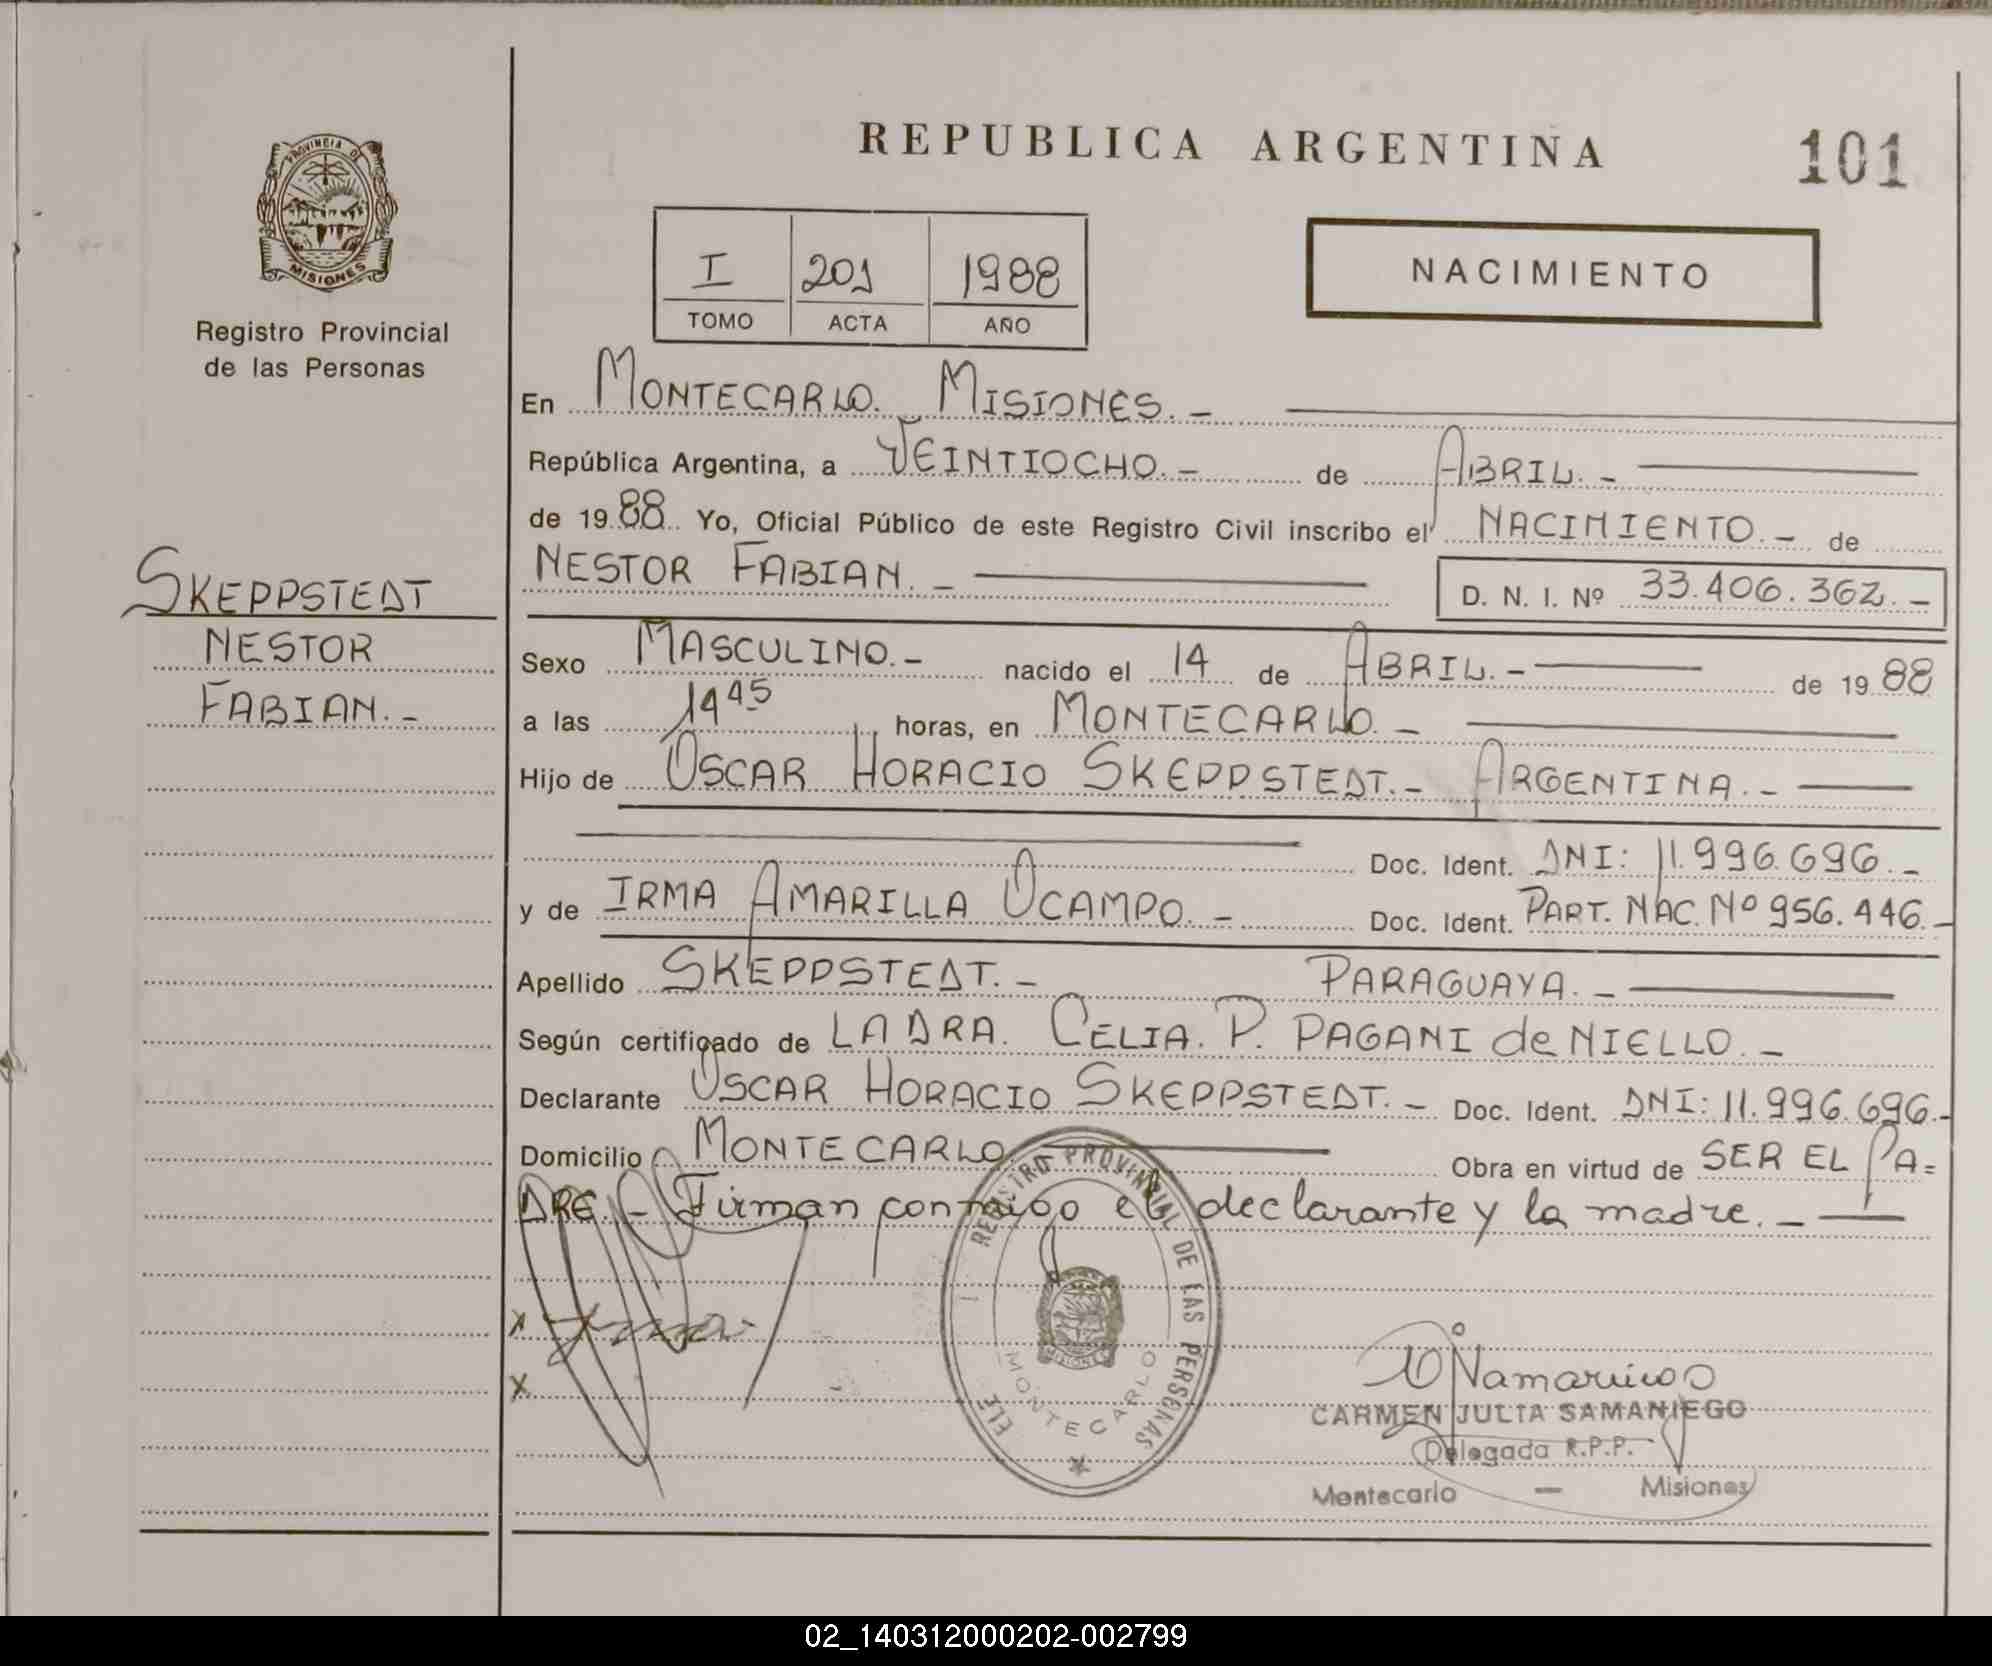 PROVINCIA DE
MISIONES
Registro Provincial
de las Personas
REPUBLICA ARGENTINA
101
I 201 1988
TOMO ACTA AÑO
NACIMIENTO
En MONTECARLO. MISIONES. -
República Argentina, a VEINTIOCHO. - de ABRIL. -
de 1988 Yo, Oficial Público de este Registro Civil inscribo el NACIMIENTO. - de
NESTOR FABIAN. - D. N. I. Nº 33.406.362. -
SKEPPSTEDT
NESTOR
FABIAN. -
Sexo MASCULINO. - nacido el 14 de ABRIL. - de 1988
a las 14 45 horas, en MONTECARLO. -
Hijo de OSCAR HORACIO SKEPPSTEDT. - ARGENTINA. -
Doc. Ident. DNI: 11.996.696. -
y de IRMA AMARILLA OCAMPO. - Doc. Ident. PART. NAC. Nº 956.446. -
Apellido SKEPPSTEDT. - PARAGUAYA. -
Según certificado de LA DRA. CELIA. P. PAGANI de NIELLO. -
Declarante OSCAR HORACIO SKEPPSTEDT. - Doc. Ident. DNI: 11.996.696. -
Domicilio MONTECARLO Obra en virtud de SER EL PA=
DRE. - Firman conmigo el declarante y la madre. -
REGISTRO PROVINCIAL DE LAS PERSONAS
MISIONES
MONTECARLO
x
x
CARMEN JULIA SAMANIEGO
Delegada R.P.P.
Montecarlo - Misiones
02_140312000202-002799